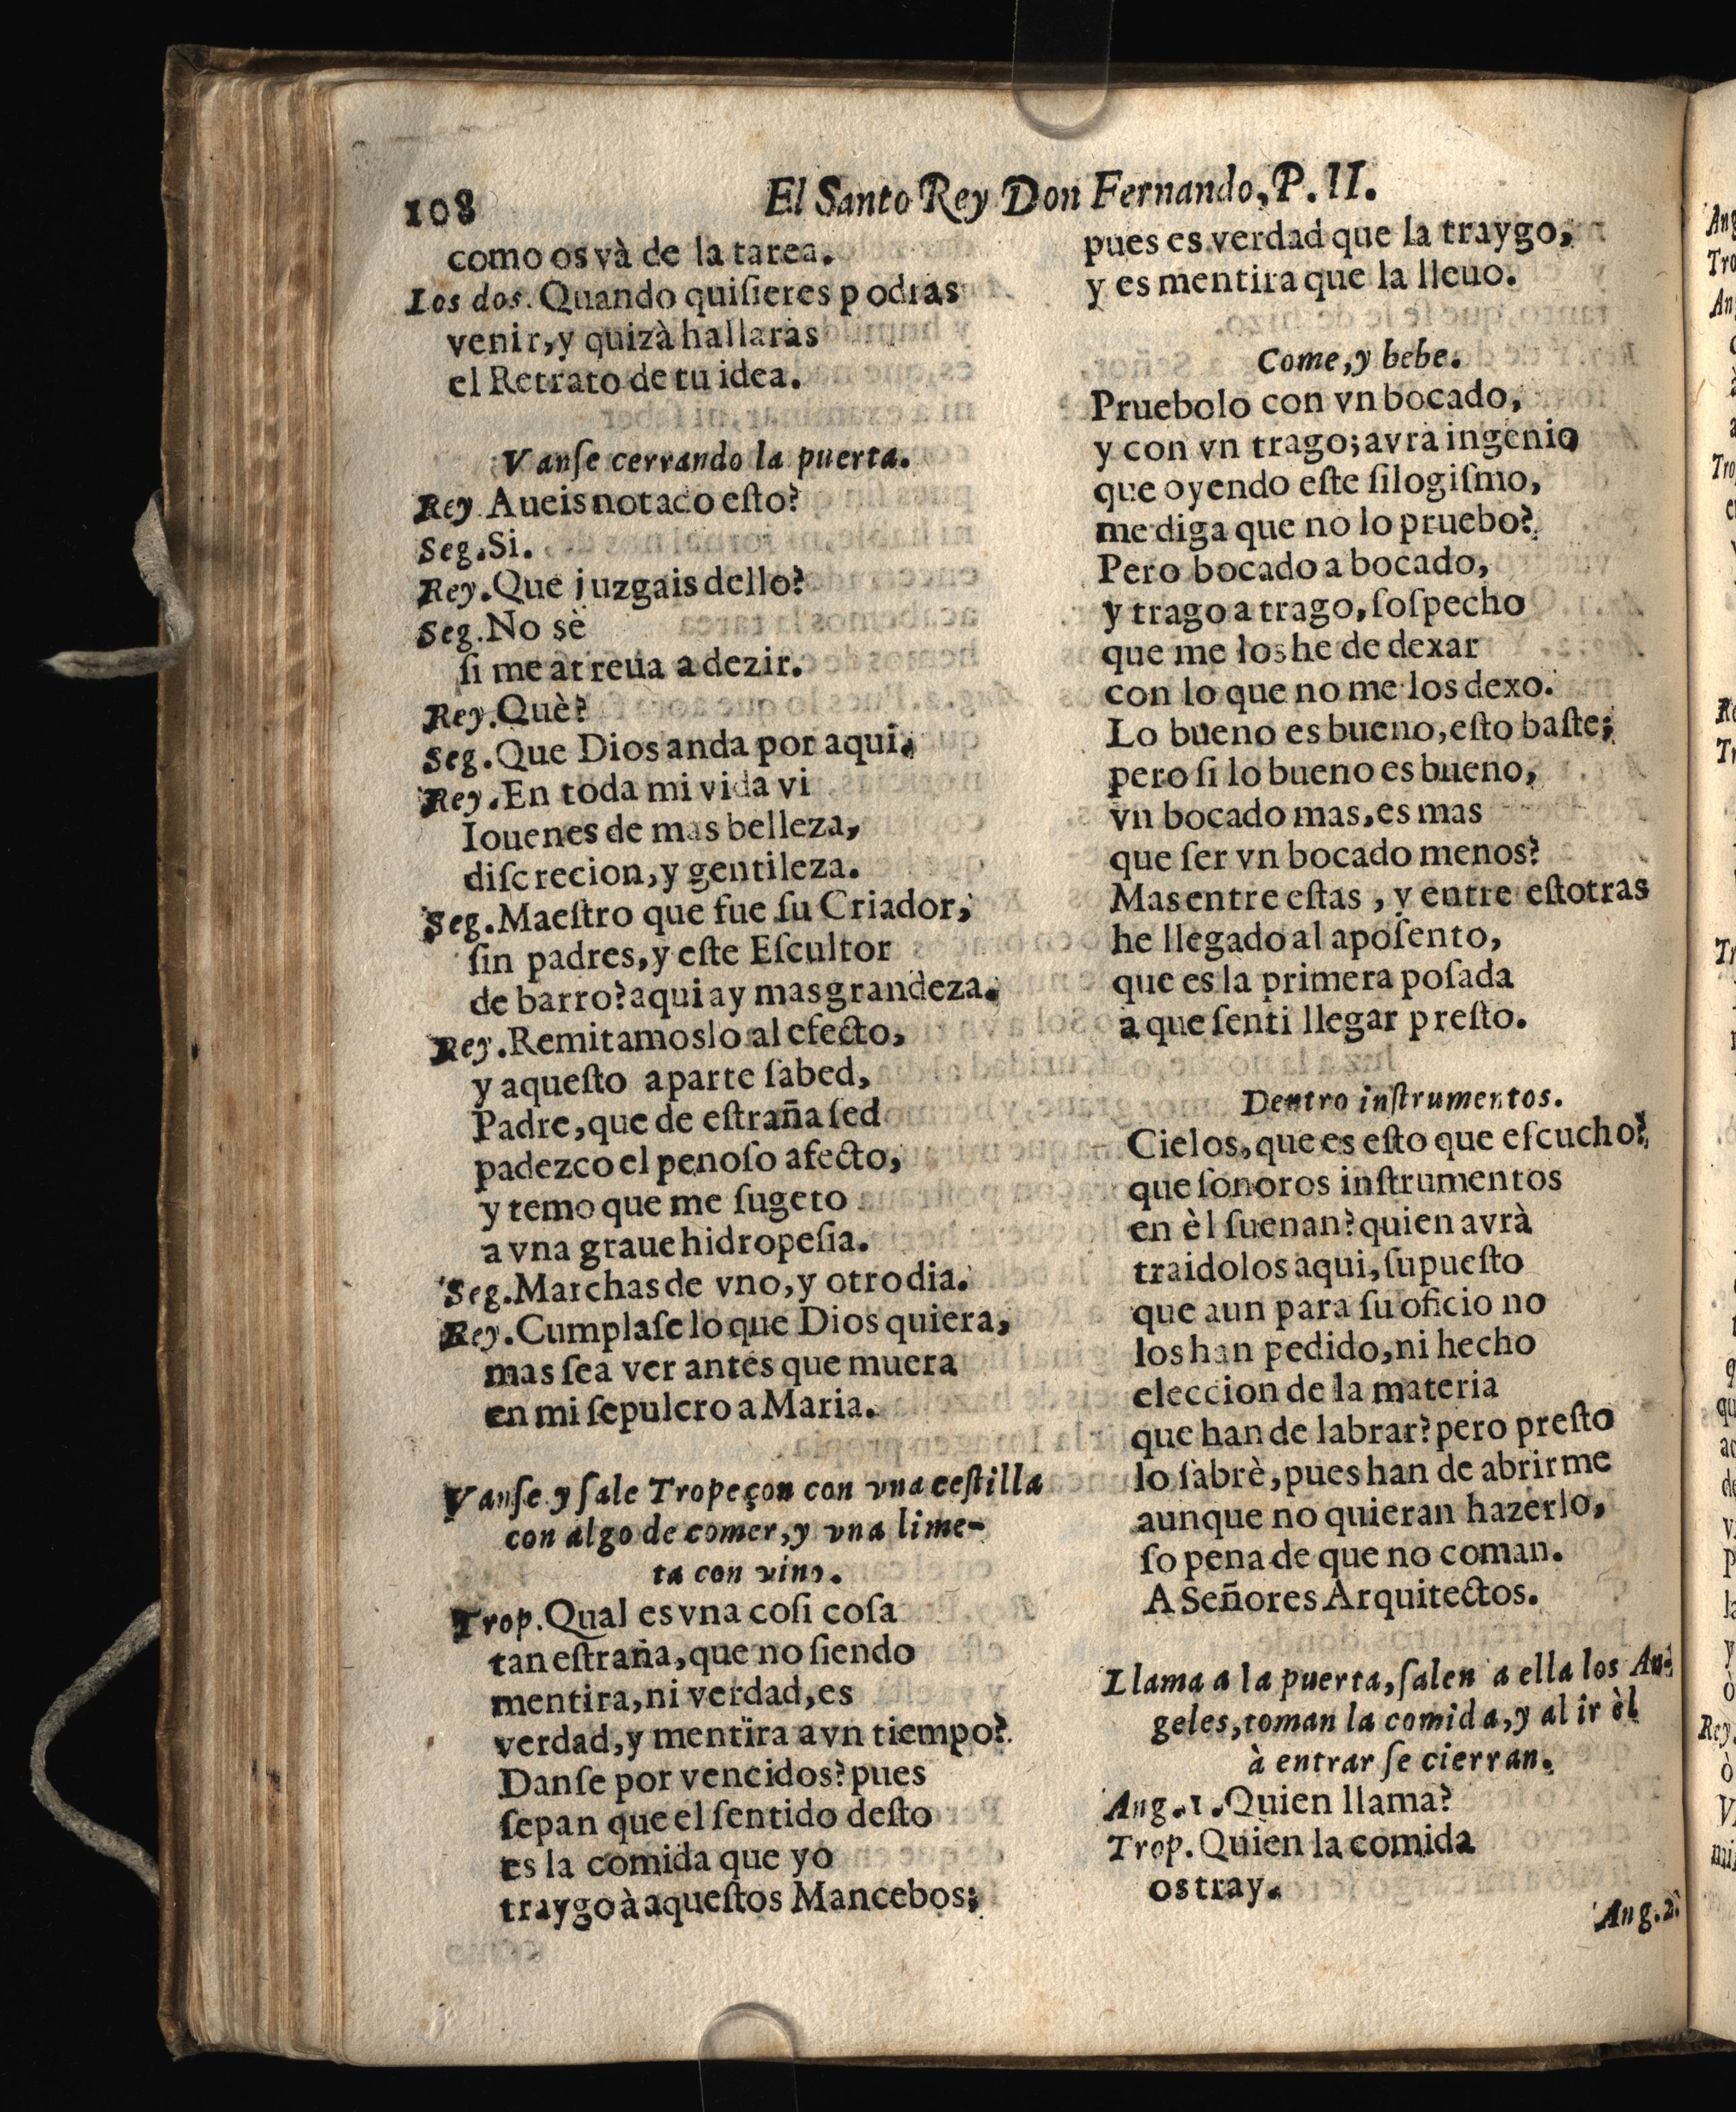 108
El Santo Rey Don Fernando, P. II.
como os và de la tarea.
Los dos. Quando quiſieres podras
venir, y quizà hallaras
el Retrato de tu idea.
Vanſe cerrando la puerta.
Rey. Aueis notado eſto?
Seg. Si.
Rey. Que juzgais dello?
Seg. No sè
ſi me atreua a dezir.
Rey. Què?
Seg. Que Dios anda por aqui.
Rey. En toda mi vida vi
Iouenes de mas belleza,
diſcrecion, y gentileza.
Seg. Maeſtro que fue ſu Criador,
ſin padres, y eſte Eſcultor
de barro? aqui ay mas grandeza.
Rey. Remitamoslo al efecto,
y aqueſto aparte ſabed,
Padre, que de eſtraña ſed
padezco el penoſo afecto,
y temo que me ſugeto
a vna graue hidropeſia.
Seg. Marchas de vno, y otro dia.
Rey. Cumplaſe lo que Dios quiera,
mas ſea ver antes que muera
en mi ſepulcro a Maria.
Vanſe y ſale Tropeçon con vna ceſtilla
con algo de comer, y vna lime-
ta con vino.
Trop. Qual es vna coſi coſa
tan eſtraña, que no ſiendo
mentira, ni verdad, es
verdad, y mentira a vn tiempo?
Danſe por vencidos? pues
ſepan que el ſentido deſto
es la comida que yo
traygo à aqueſtos Mancebos;
pues es verdad que la traygo,
y es mentira que la lleuo.
Come, y bebe.
Pruebolo con vn bocado,
y con vn trago; avra ingenio
que oyendo eſte ſilogiſmo,
me diga que no lo pruebo?
Pero bocado a bocado,
y trago a trago, ſoſpecho
que me los he de dexar
con lo que no me los dexo.
Lo bueno es bueno, eſto baſte;
pero ſi lo bueno es bueno,
vn bocado mas, es mas
que ſer vn bocado menos?
Mas entre eſtas, y entre eſtotras
he llegado al apoſento,
que es la primera poſada
a que ſenti llegar preſto.
Dentro inſtrumentos.
Cielos, que es eſto que eſcucho?
que ſonoros inſtrumentos
en èl ſuenan? quien avrà
traidolos aqui, ſupueſto
que aun para ſu oficio no
los han pedido, ni hecho
eleccion de la materia
que han de labrar? pero preſto
lo ſabrè, pues han de abrirme
aunque no quieran hazerlo,
ſo pena de que no coman.
A Señores Arquitectos.
Llama a la puerta, ſalen a ella los An-
geles, toman la comida, y al ir èl
à entrar ſe cierran.
Ang. 1. Quien llama?
Trop. Quien la comida
os tray.
Ang. 2.